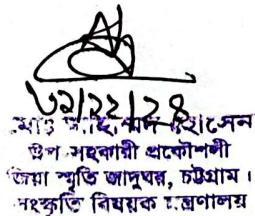 মোঃ হোসেন
উপ-সহকারী প্রকৌশলী
জিয়া স্মৃতি জাদুঘর, চট্টগ্রাম।
সংস্কৃতি বিষয়ক মন্ত্রণালয়